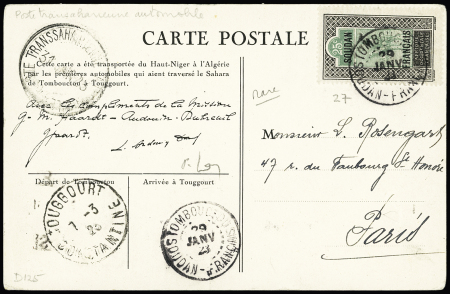 Poste transsaharienne automobile
CARTE POSTALE
SOUDAN
FRANÇAIS
TOMBOUCTOU
29
JANV
23
SOUDAN-FRANÇAIS
TRANSSAHARIENNE
Cette carte a été transportée du Haut-Niger à l'Algérie
par les premières automobiles qui aient traversé le Sahara
de Tombouctou à Touggourt.
rare
27
Avec les compliments de la Mission
G. M. Haardt - Audouin-Dubreuil
Monsieur L. Rosengart
47 r. du Faubourg St Honoré
Paris
Départ de Tombouctou
Arrivée à Touggourt
TOUGGOURT
7 -3
23
CONSTANTINE
TOMBOUCTOU
29
JANV
23
SOUDAN-FRANÇAIS
D125